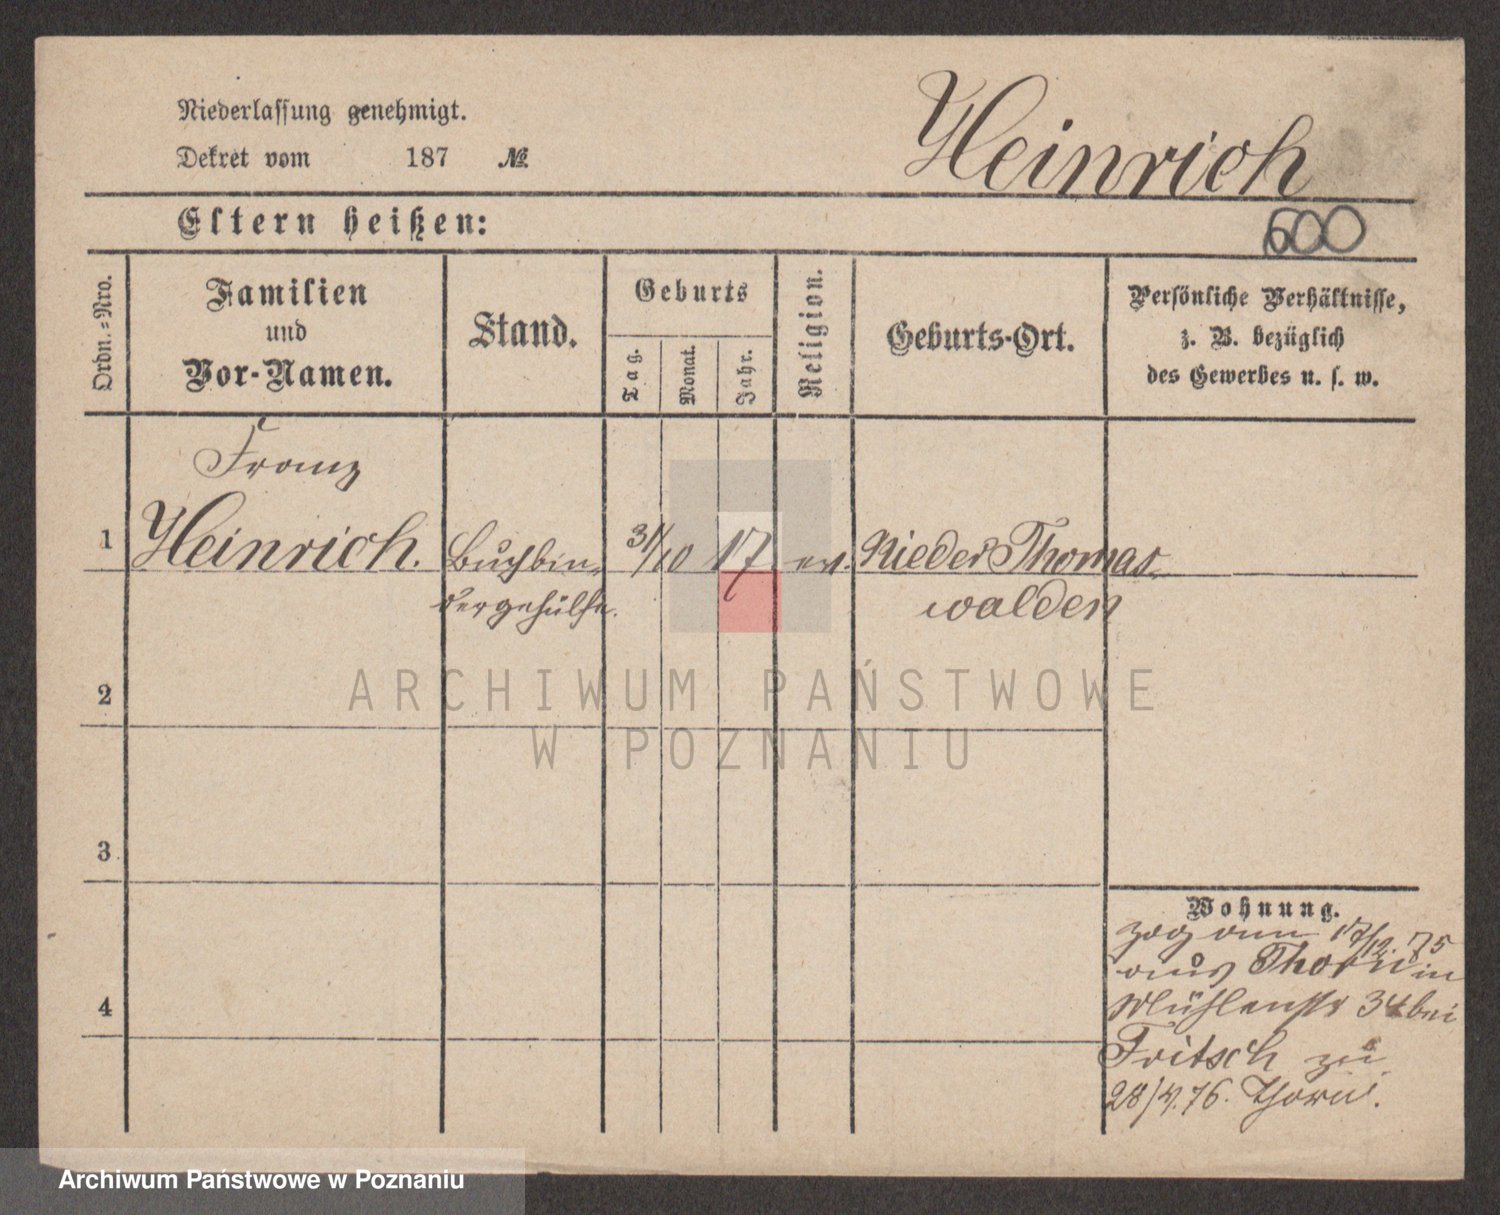 Niederlassung genehmigt.
Dekret vom 187 №
Heinrich
Eltern heißen:
600
Ordn.=Nro.
Familien
und
Vor-Namen.
Stand.
Geburts
Tag.
Monat.
Jahr.
Religion.
Geburts-Ort.
Persönliche Verhältnisse,
z. B. bezüglich
des Gewerbes u. s. w.
Franz
1 Heinrich. Buchbin- 31/10 17 ev. Nieder Thomas-
dergehülfe. walden
2
3
4
Wohnung.
zog am 17/12. 75
aus Thorn in
Mühlenstr 34 bei
Fritsch zu
28/4. 76. Thorn.
ARCHIWUM PAŃSTWOWE
W POZNANIU
Archiwum Państwowe w Poznaniu